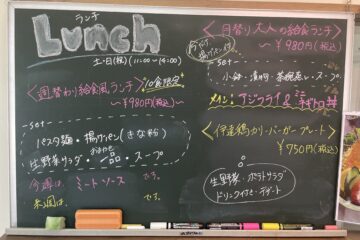 ランチ
Lunch
土・日(祝)(11:00〜14:00)
<週替わり給食風ランチ>
10食限定
〜¥980円(税込)
set
パスタ麺・揚げパン(きな粉)
生野菜サラダ・おまかせ一品・スープ
今週は、ミートソース です。
来週は、 です。
<月替り大人の給食ランチ>
〜¥980円(税込)
set
小鉢・漬物・茶碗蒸し・スープ
メイン:アジフライ & ミニネギトロ丼
<伊達鶏カリーバーガープレート>
¥750円(税込)
生野菜・ポテトサラダ
ドリンク付き・デザート